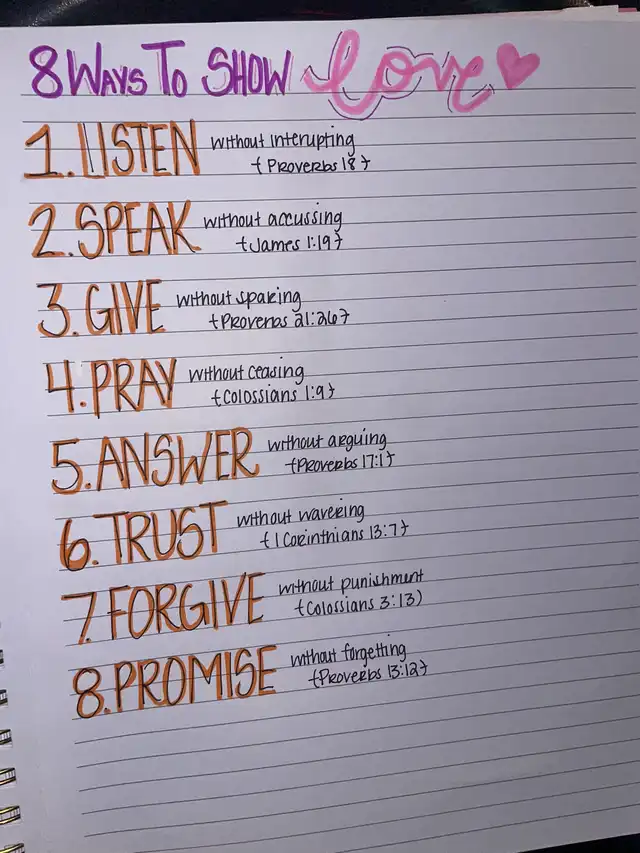 8 WAYS TO SHOW love
1. LISTEN without interupting
{Proverbs 18}
2. SPEAK without accussing
{James 1:19}
3. GIVE without sparing
{Proverbs 21:26}
4. PRAY without ceasing
{Colossians 1:9}
5. ANSWER without arguing
{Proverbs 17:1}
6. TRUST without wavering
{1 Corinthians 13:7}
7. FORGIVE without punishment
{Colossians 3:13)
8. PROMISE without forgetting
{Proverbs 13:12}